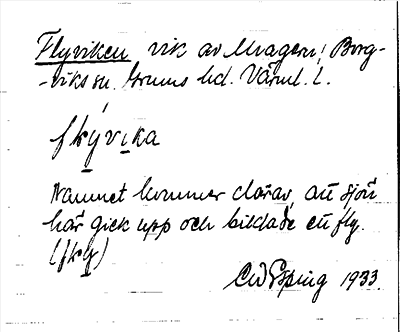 Flyviken vik av Magern, Borg-
-viks sn. Grums hd. Värml. l.
flývika
Namnet kommer därav, att sjön
här gick upp och bildade ett fly.
(fly)
CWEsping 1933.